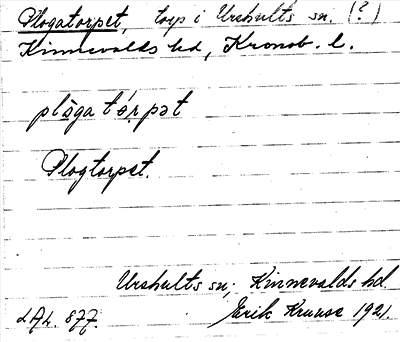 Plogatorpet, torp i Urshults sn. (?)
Kinnevalds hd, Kronob. l.
plòga tǿrpət
Plogtorpet.
Urshults sn; Kinnevalds hd.
LAL. 877. Erik Kruuse 1921